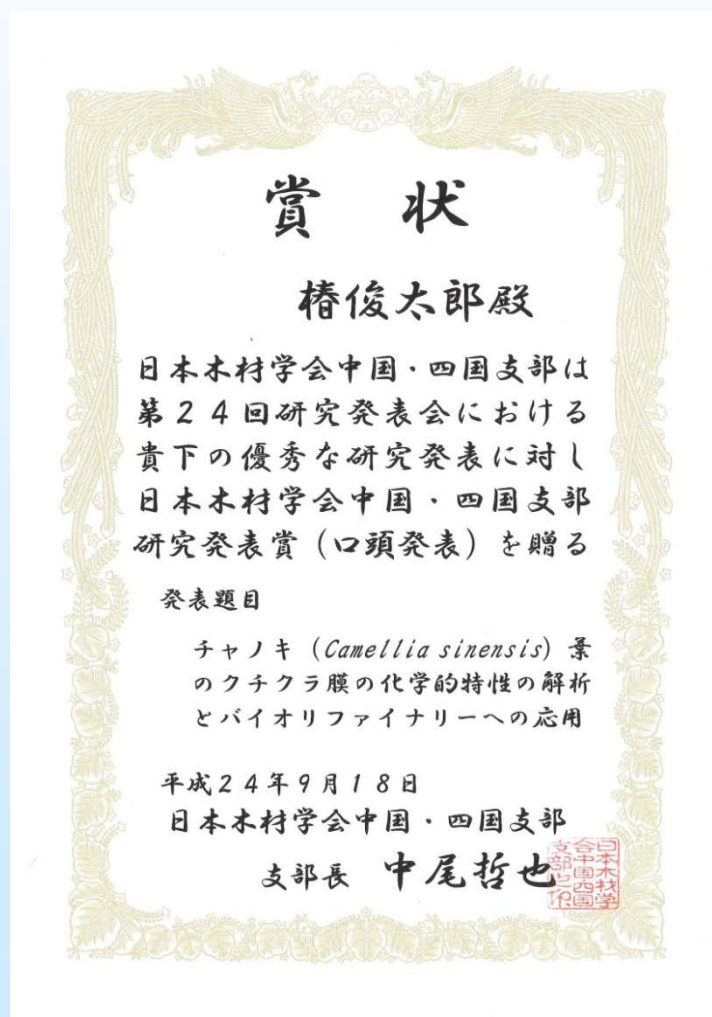 賞 状
椿俊太郎殿
日本木材学会中国・四国支部は
第24回研究発表会における
貴下の優秀な研究発表に対し
日本木材学会中国・四国支部
研究発表賞(口頭発表)を贈る
発表題目
チャノキ(Camellia sinensis)葉
のクチクラ膜の化学的特性の解析
とバイオリファイナリーへの応用
平成24年9月18日
日本木材学会中国・四国支部
支部長 中尾哲也
日本木材学
会中国四国
支部之印